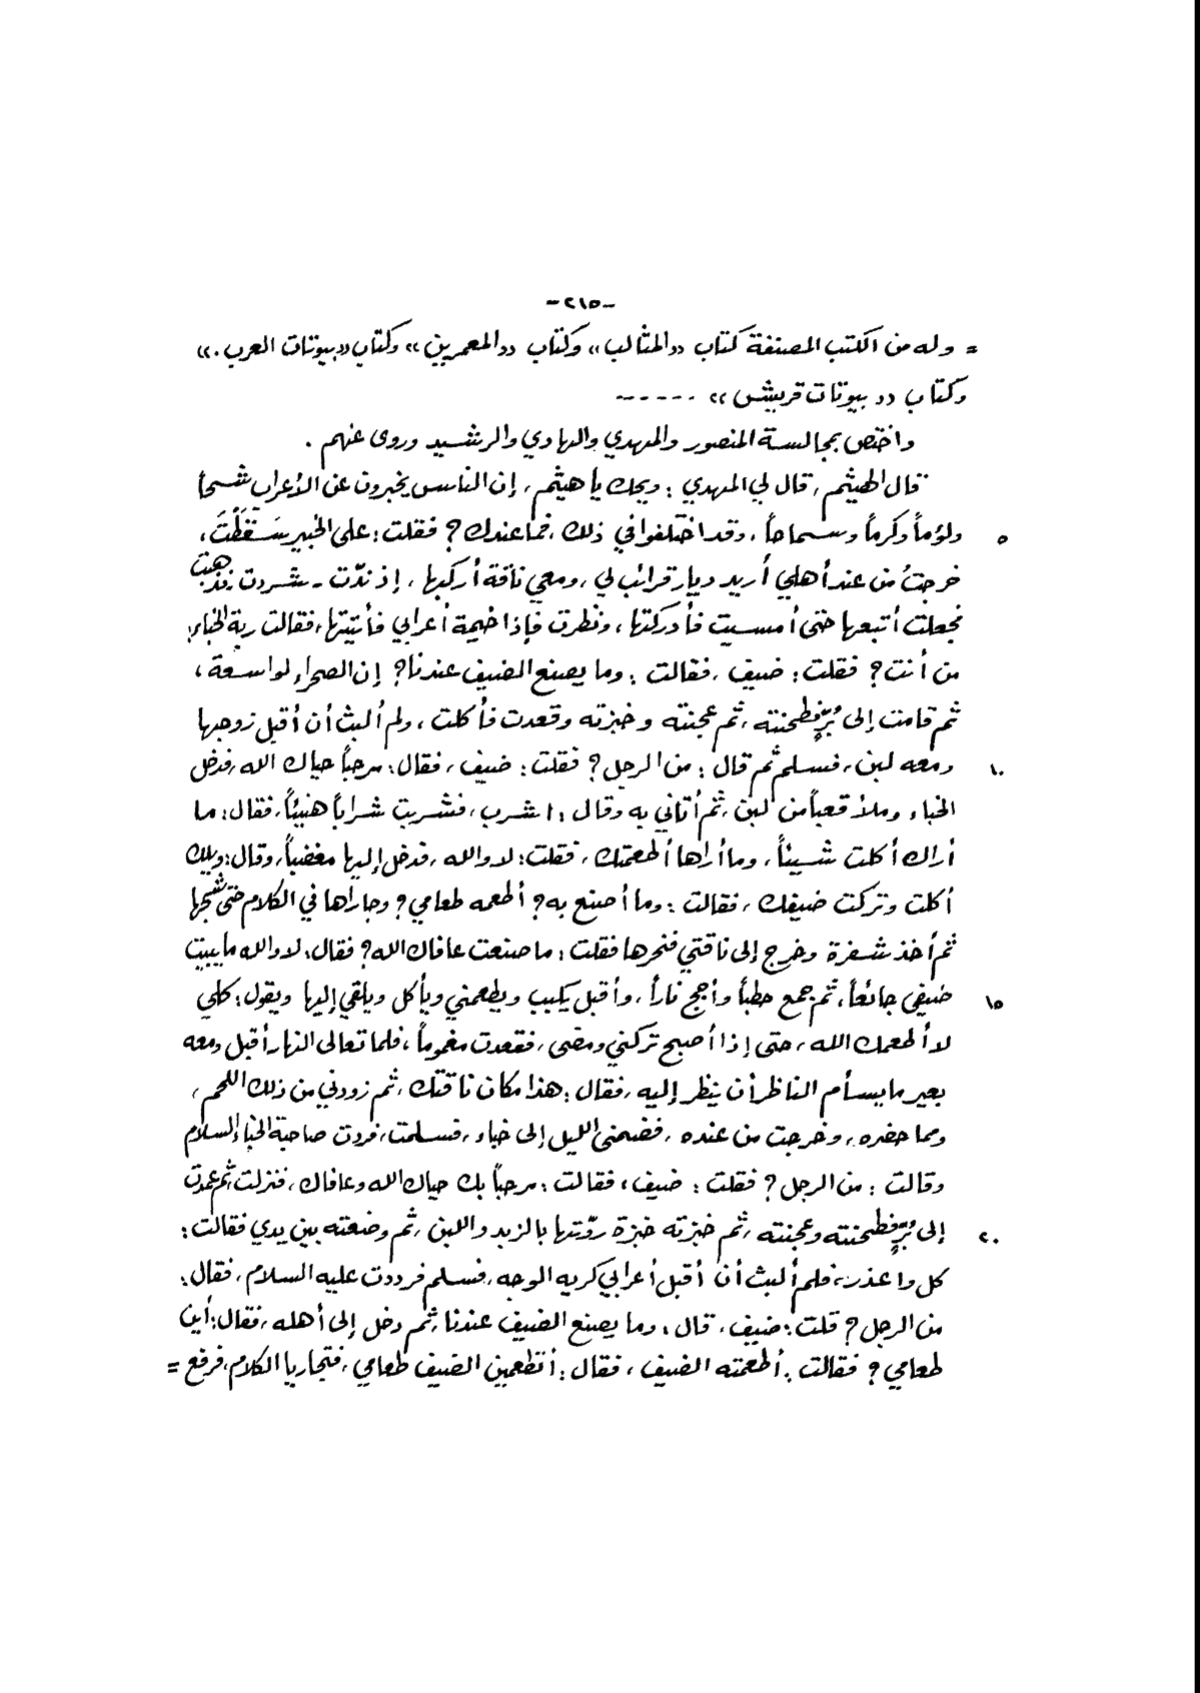 -٢١٥-
= وله من الكتب المصنفة كتاب «المثالب» وكتاب «المعمرين» وكتاب «بيوتات العرب.»
وكتاب «بيوتات قريش» ------
واختص بمجالسة المنصور والمهدي والهادي والرشيد وروى عنهم .
قال الهيثم، قال لي المهدي : ويحك يا هيثم، إن الناس يخبرون عن الأعراب شحاً
٥ ولؤماً وكرماً وسماحاً، وقد اختلفوا في ذلك، فما عندك؟ فقلت: على الخبير سَقَطْتَ،
خرجتُ من عند أهلي أريد ديار قرائب لي، ومعي ناقة أركبها، إذ ندّت - شردت فذهبت
فجعلت أتبعها حتى أمسيت فأدركتها، ونظرت فإذا خيمة أعرابي فأتيتها، فقالت ربة الخباء:
من أنت؟ فقلت: ضيف، فقالت : وما يصنع الضيف عندنا؟ إن الصحراء لواسعة،
ثم قامت إلى بُرٍّ فطحنته، ثم عجنته وخبزته وقعدت فأكلت، ولم ألبث أن أقبل زوجها
١٠ ومعه لبن، فسلم ثم قال : من الرجل؟ فقلت: ضيف، فقال: مرحباً حياك الله، فدخل
الخباء وملأ قعباً من لبن، ثم أتاني به وقال : اشرب، فشربت شراباً هنيئاً، فقال: ما
أراك أكلت شيئاً، وما أراها أطعمتك، فقلت: لا والله، فدخل إليها مغضباً، وقال: ويلك
أكلت وتركت ضيفك، فقالت : وما أصنع به؟ أطعمه طعامي؟ وجاراها في الكلام حتى شجها
ثم أخذ شفرة وخرج إلى ناقتي فنحرها فقلت : ما صنعت عافاك الله؟ فقال: لا والله ما يبيت
١٥ ضيفي جائعاً، ثم جمع حطباً وأجج ناراً، وأقبل يكبب ويطعمني ويأكل ويلقي إليها ويقول: كلي
لا أطعمك الله، حتى إذا أصبح تركني ومضى، فقعدت مغموماً، فلما تعالى النهار أقبل ومعه
بعير ما يسأم الناظر أن ينظر إليه، فقال : هذا مكان ناقتك، ثم زودني من ذلك اللحم،
ومما حضره، وخرجت من عنده، فضمني الليل إلى خباء، فسلمت، فردت صاحبة الخباء السلام
وقالت : من الرجل؟ فقلت : ضيف، فقالت : مرحباً بك حياك الله وعافاك، فنزلت، ثم عمدت
٢٠ إلى بُرٍّ فطحنته وعجنته، ثم خبزته خبزة روّتها بالزبد واللبن، ثم وضعته بين يدي فقالت :
كل واعذر، فلم ألبث أن أقبل أعرابي كريه الوجه، فسلم فرددت عليه السلام، فقال:
من الرجل؟ قلت: ضيف، قال : وما يصنع الضيف عندنا، ثم دخل إلى أهله، فقال: أين
طعامي؟ فقالت : أطعمته الضيف، فقال : أتطعمين الضيف طعامي، فتجاريا الكلام، فرفع =